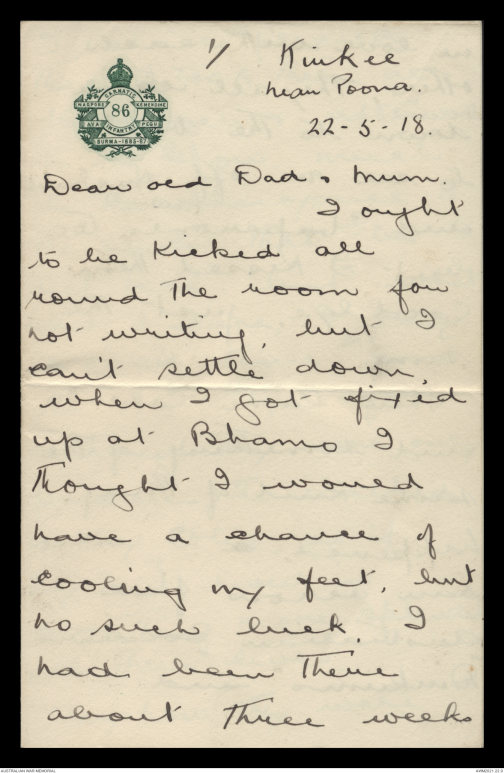 1/ Kirkee
near Poona.
22-5-18.
CARNATIC
NAGPORE KEMENDINE
86
AVA PEGU
INFANTRY
BURMA-1885-87
Dear old Dad & Mum.
I ought
to be kicked all
round the room for
not writing, but I
can't settle down,
when I got fixed
up at Bhamo I
thought I would
have a chance of
cooling my feet, but
no such luck. I
had been there
about three weeks
AUSTRALIAN WAR MEMORIAL